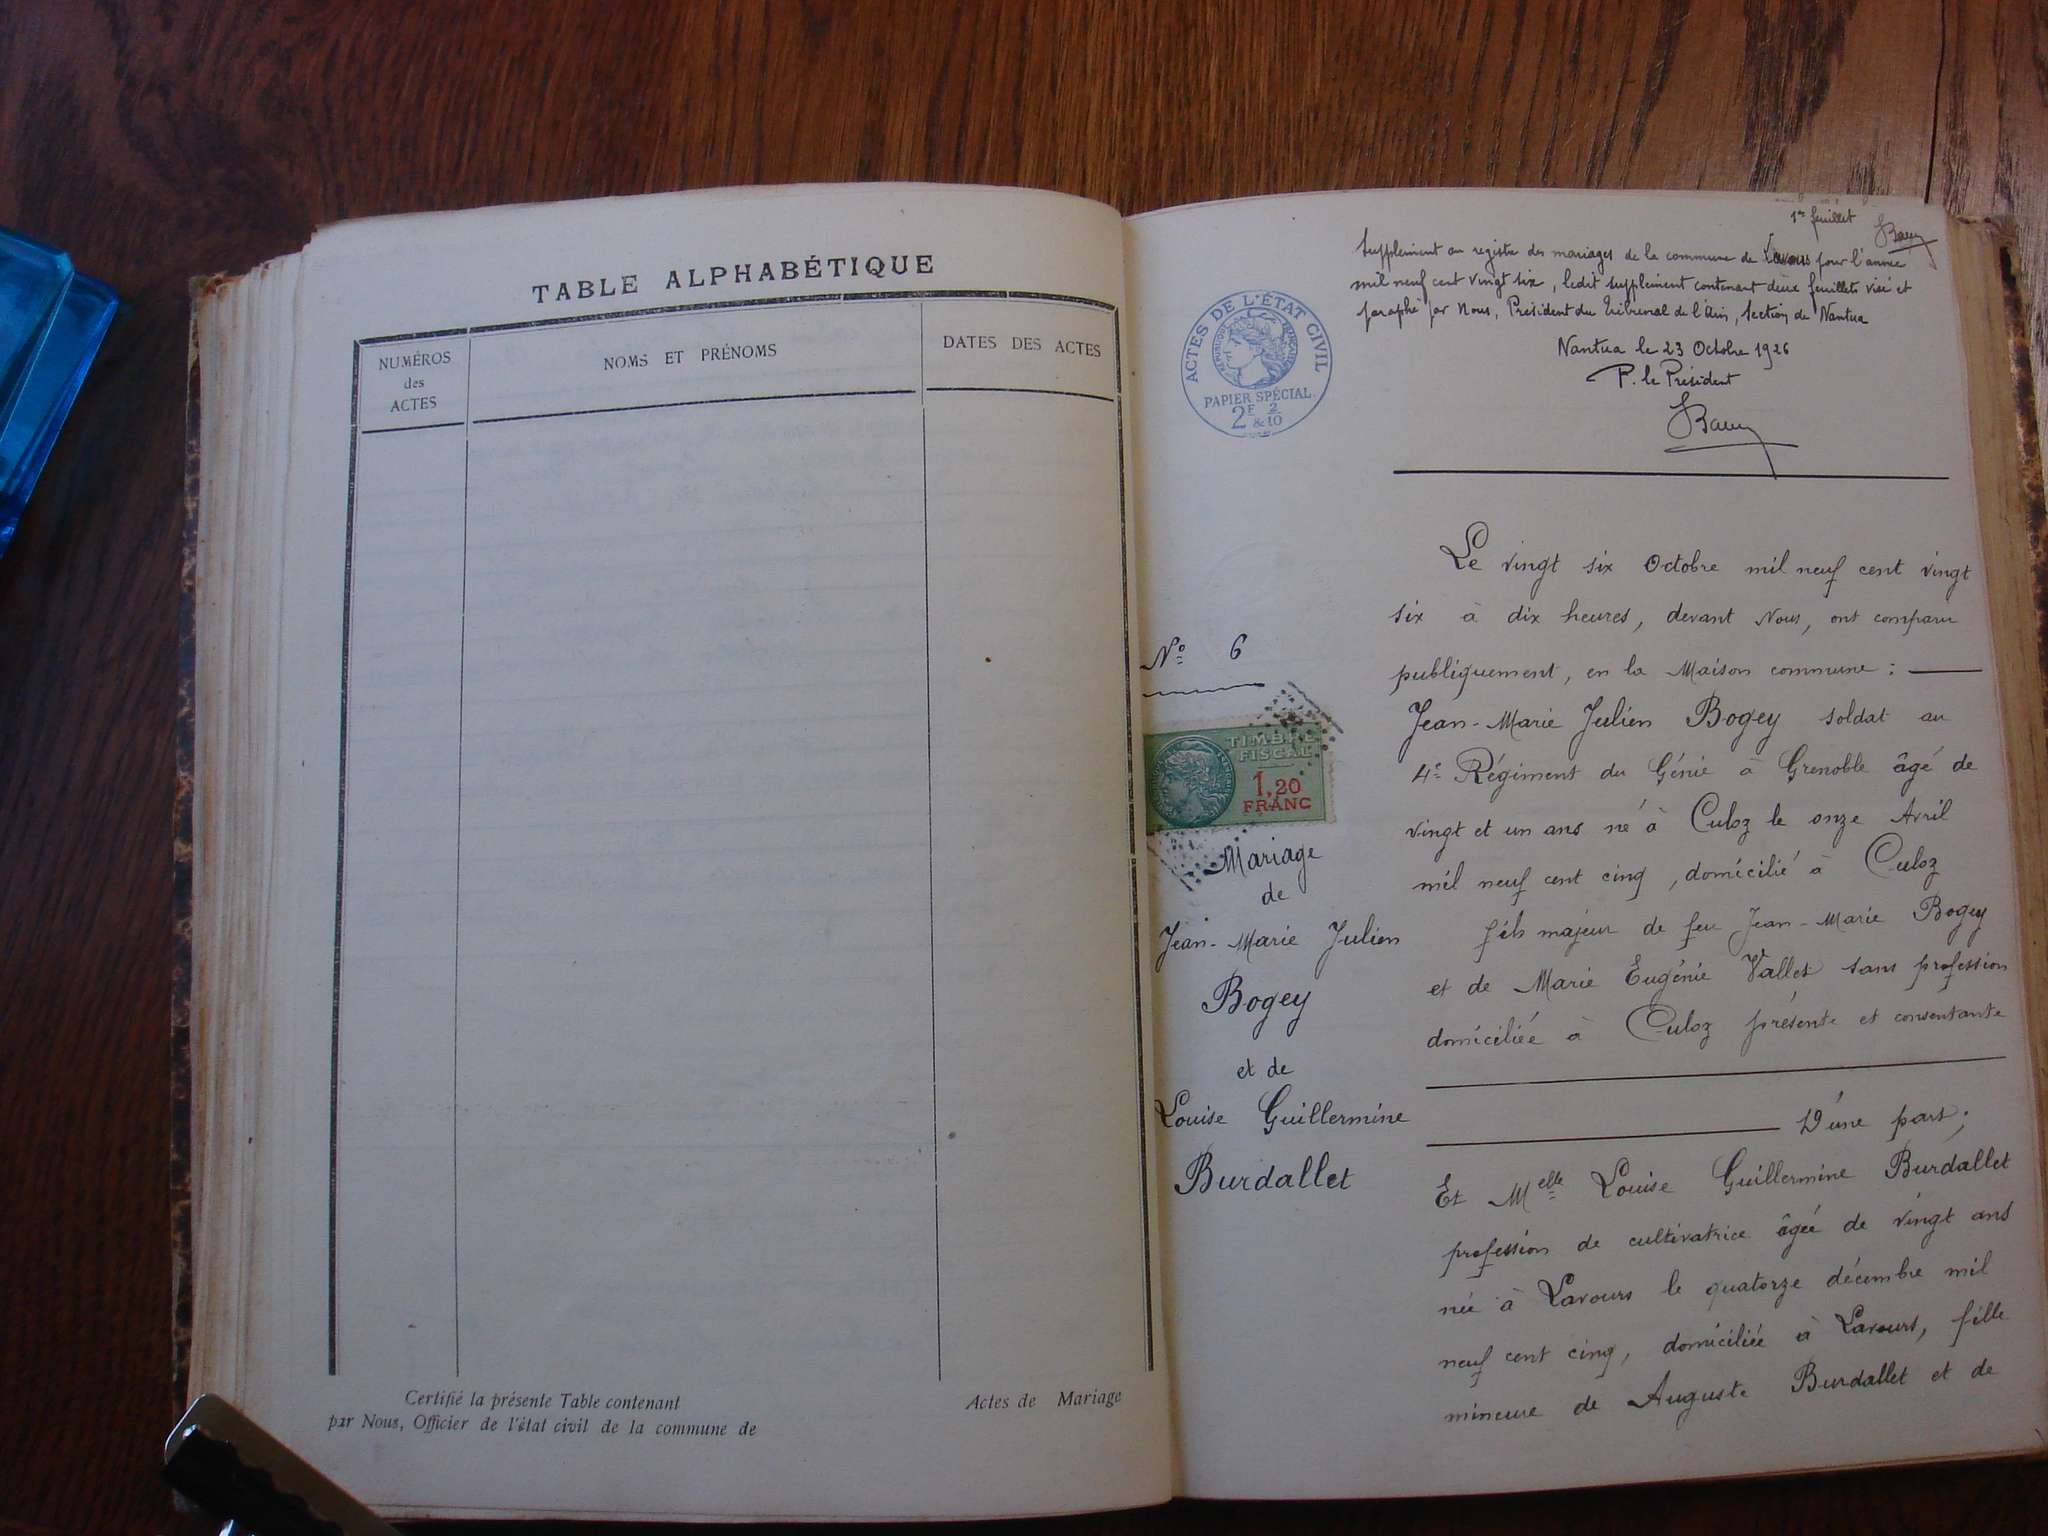 TABLE ALPHABÉTIQUE
NUMÉROS
des
ACTES
NOMS ET PRÉNOMS
DATES DES ACTES
Certifié la présente Table contenant
Actes de Mariage
par Nous, Officier de l'état civil de la commune de
1er feuillet
Supplément au registre des mariages de la commune de Lavours pour l'année
mil neuf cent vingt six, ledit supplément contenant deux feuillets visé et
paraphé par Nous, Président du Tribunal de l'Ain, Section de Nantua
Nantua le 23 Octobre 1926
P. le Président
ACTES DE L'ÉTAT CIVIL
RÉPUBLIQUE FRANÇAISE
PAPIER SPÉCIAL
2F & 2/10
No 6
TIMBRE
FISCAL
1,20
FRANC
Mariage
de
Jean-Marie Julien
Bogey
et de
Louise Guillermine
Burdallet
Le vingt six Octobre mil neuf cent vingt
six à dix heures, devant Nous, ont comparu
publiquement, en la Maison commune :
Jean-Marie Julien Bogey soldat au
4e Régiment du Génie à Grenoble âgé de
vingt et un ans né à Culoz le onze Avril
mil neuf cent cinq, domicilié à Culoz
fils majeur de feu Jean-Marie Bogey
et de Marie Eugénie Vallet sans profession
domiciliée à Culoz présente et consentante
D'une part;
Et Melle Louise Guillermine Burdallet
profession de cultivatrice âgée de vingt ans
née à Lavours le quatorze décembre mil
neuf cent cinq, domiciliée à Lavours, fille
mineure de Auguste Burdallet et de